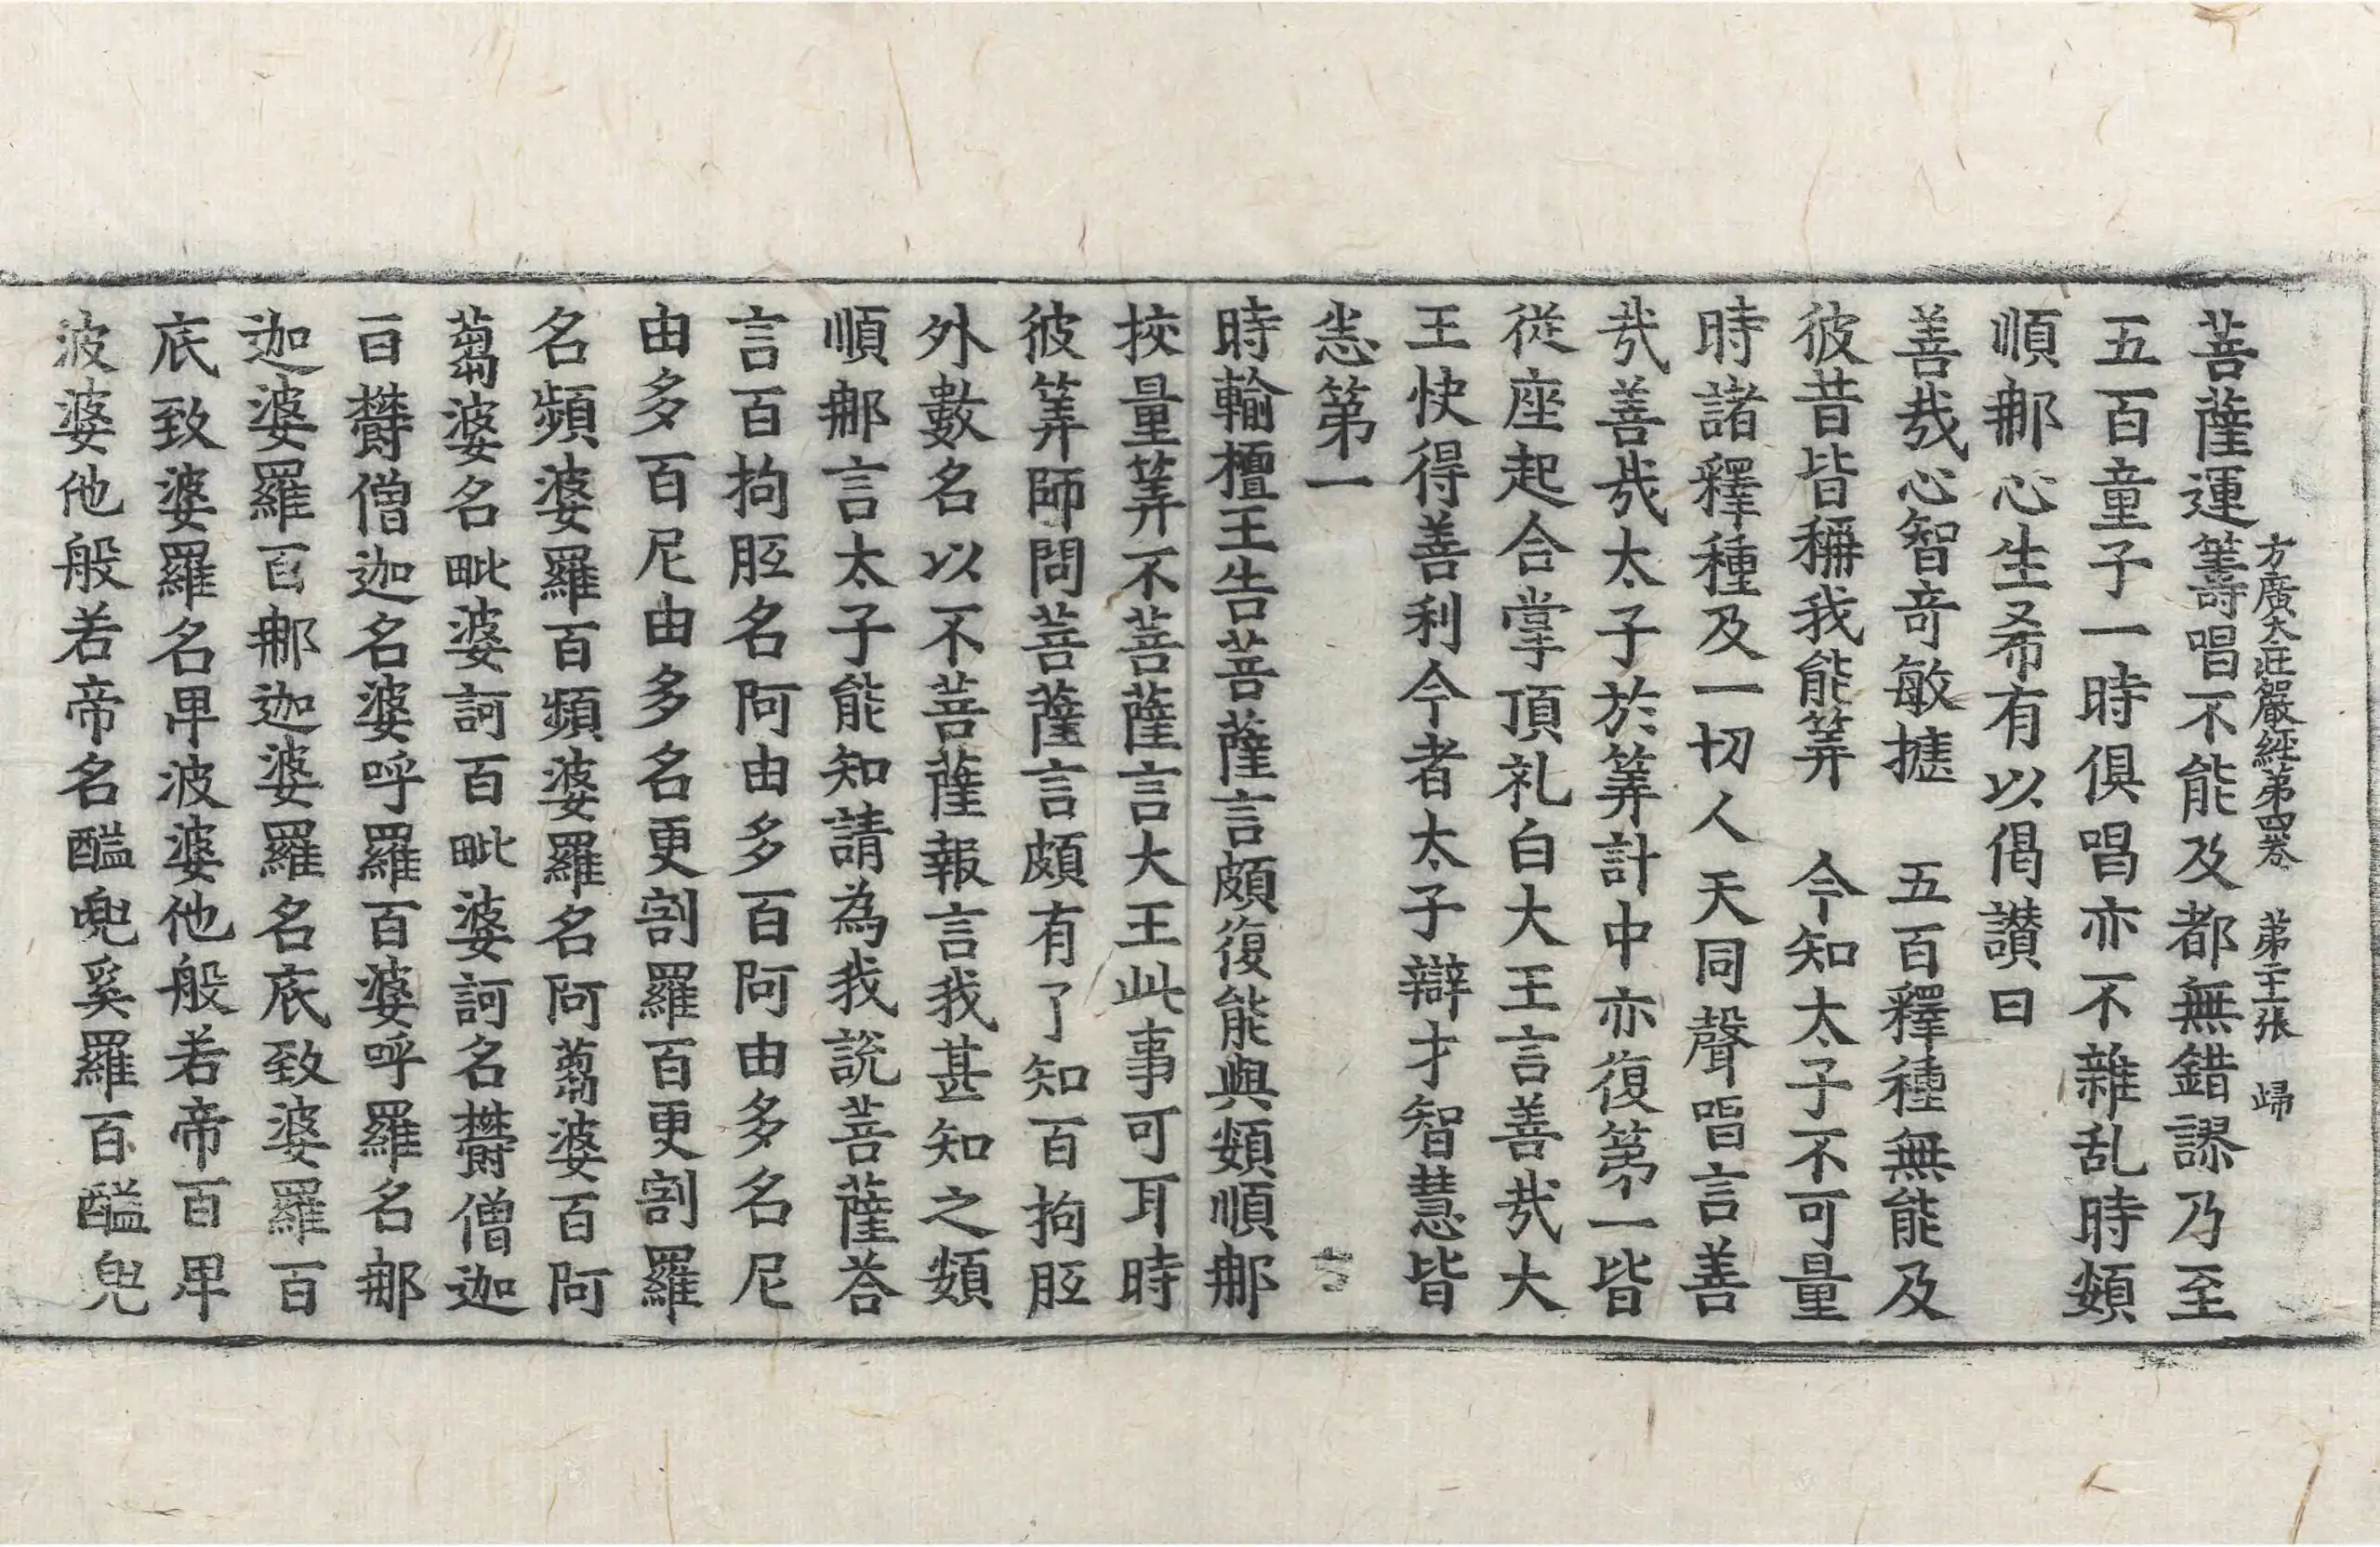 菩薩運籌唱不能及都無錯謬乃至
方廣大莊嚴經第四卷 第十一張 歸
五百童子一時俱唱亦不雜乱時頞
順那心生希有以偈讃曰
善㢤心智竒敏捷 五百釋種無能及
彼昔皆稱我能筭 今知太子不可量
時諸釋種及一切人天同聲唱言善
㢤善㢤太子於筭計中亦復第一皆
從座起合掌頂礼白大王言善㢤大
王快得善利今者太子辯才智慧皆
悉第一
時輸檀王告菩薩言頗復能與頞順那
挍量筭不菩薩言大王此事可耳時
彼筭師問菩薩言頗有了知百拘胝
外數名以不菩薩報言我甚知之頞
順那言太子能知請為我說菩薩荅
言百拘胝名阿由多百阿由多名尼
由多百尼由多名更割羅百更割羅
名頻婆羅百頻婆羅名阿蒭婆百阿
蒭婆名毗婆訶百毗婆訶名欝僧迦
百欝僧迦名婆呼羅百婆呼羅名那
迦婆羅百那迦婆羅名底致婆羅百
底致婆羅名卑波婆他般若帝百卑
波婆他般若帝名醯兜奚羅百醯兜